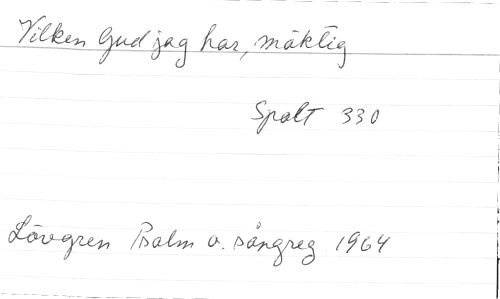 Vilken Gud jag har, mäktig
Spalt 330
Lövgren Psalm o. sångreg 1964